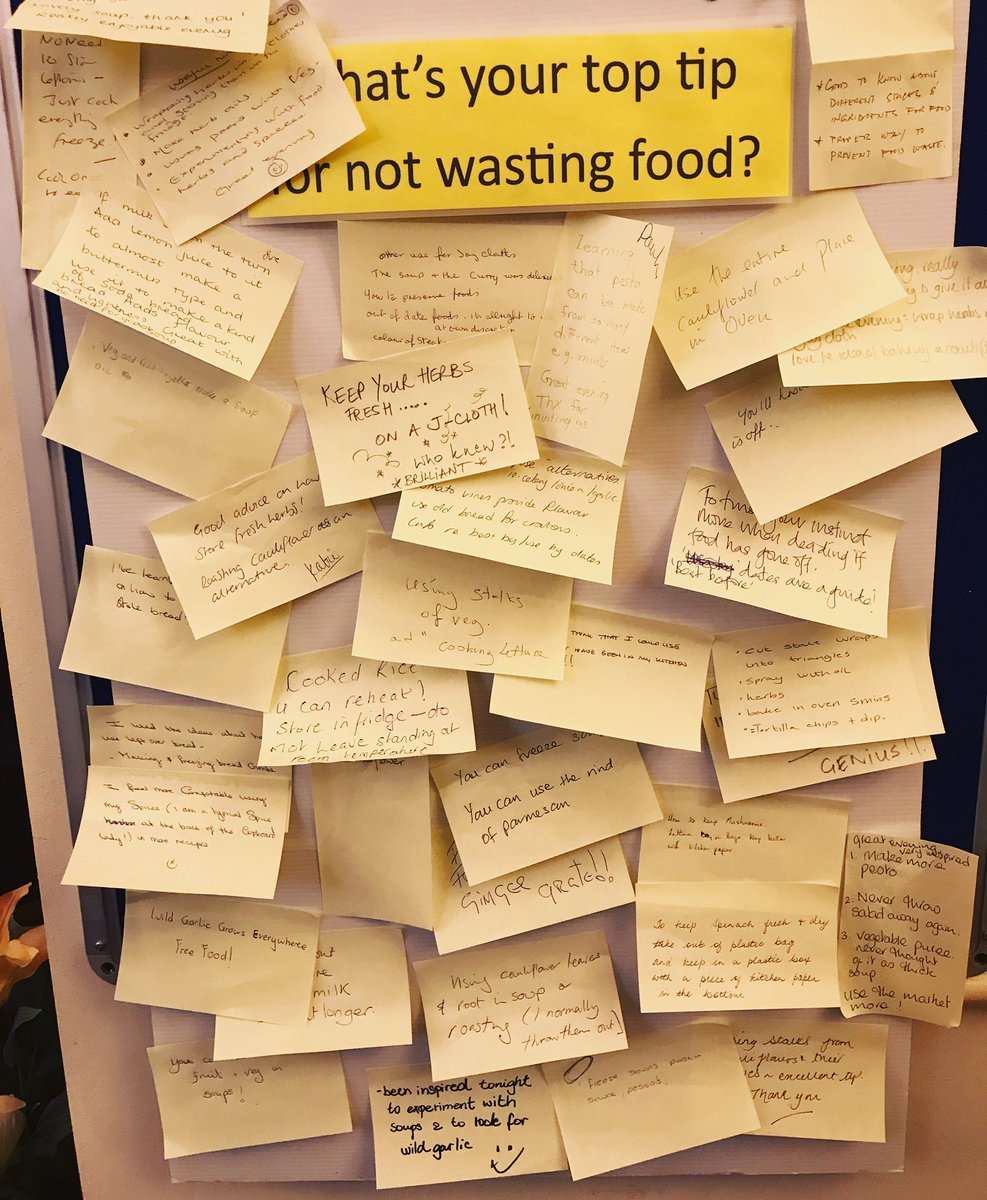 Lovely soup, thank you!
Really enjoyable evening
No Need
to
Just cook
everything
freeze.
Wrapping herbs in
and storing in
fridge
Make herb oils.
using peeps with veg.
Experimenting with food
herbs and spices!
Great evening
What's your top tip
for not wasting food?
* GOOD TO KNOW ABOUT
DIFFERENT SPICES &
INGREDIENTS FOR FOOD
* PROPER WAY TO
PREVENT FOOD WASTE.
If milk on the turn
Add lemon juice to it
to almost make a
buttermilk type and
use it to make a kind
of soda bread
Adds flavour
and lightness. Great with
soup
other use for Jay cloths
The soup & the Curry was
How to preserve foods
out of date foods. it alright to
at own discretion
colour of steak
Pauly
Learning
that pesto
can be made
from so many
different items
e.g. mints
Great evening
Thx for
inviting me
Use the entire
cauliflower and place
in oven
really
to give it a
evening: wrap herbs in
cloth
love the idea of baking a
You'll know
is off...
Veg and fruit together make a soup
KEEP YOUR HERBS
FRESH.....
ON A J-CLOTH!
WHO KNEW?!
*BRILLIANT*
alternatives
celery/onion/garlic
tomato vines provide flavour
use old bread for croutons
best by/use by dates
To trust your instinct
more when deciding if
food has gone off.
'Best before' dates are a guide!
Good advice on how
store fresh herbs!
Roasting Cauliflower as an
alternative. Katie
I've learnt
on how to
stale bread
Using stalks
of veg.
and " Cooking Lettuce
THINK THAT I COULD USE
HAVE BEEN IN MY KITCHEN
• Cut stale wraps
into triangles
• Spray with oil
• herbs
• bake in oven 5mins
• Tortilla chips + dip.
GENIUS!!.
Cooked Rice
u can reheat!
Store in fridge - do
not leave standing at
room temperature
I liked the ideas about how
use left over bread -
freezing bread
I feel more comfortable using
my Spices (I am a typical Spice
at the back of the cupboard
lady!) in more recipes
You can freeze
You can use the rind
of parmesan
GINGER GRATED!!
How to keep Mushrooms
Lettuce
with kitchen paper
To keep spinach fresh + dry
take out of plastic bag
and keep in a plastic box
with a piece of kitchen paper
in the bottom
great evening
very inspired
1. Make more
pesto
2. Never throw
salad away again.
3. vegetable puree
never thought
of it as thick
soup
use the market
more!
Wild Garlic Grows Everywhere
Free Food!
milk
longer.
Using cauliflower leaves
& root in soup or
roasting (I normally
throw them out)
You
fruit + veg in
soups!
-been inspired tonight
to experiment with
soups & to look for
wild garlic
freeze soups, pasta
sauce, pestos.
stalks from
excellent tip.
Thank you